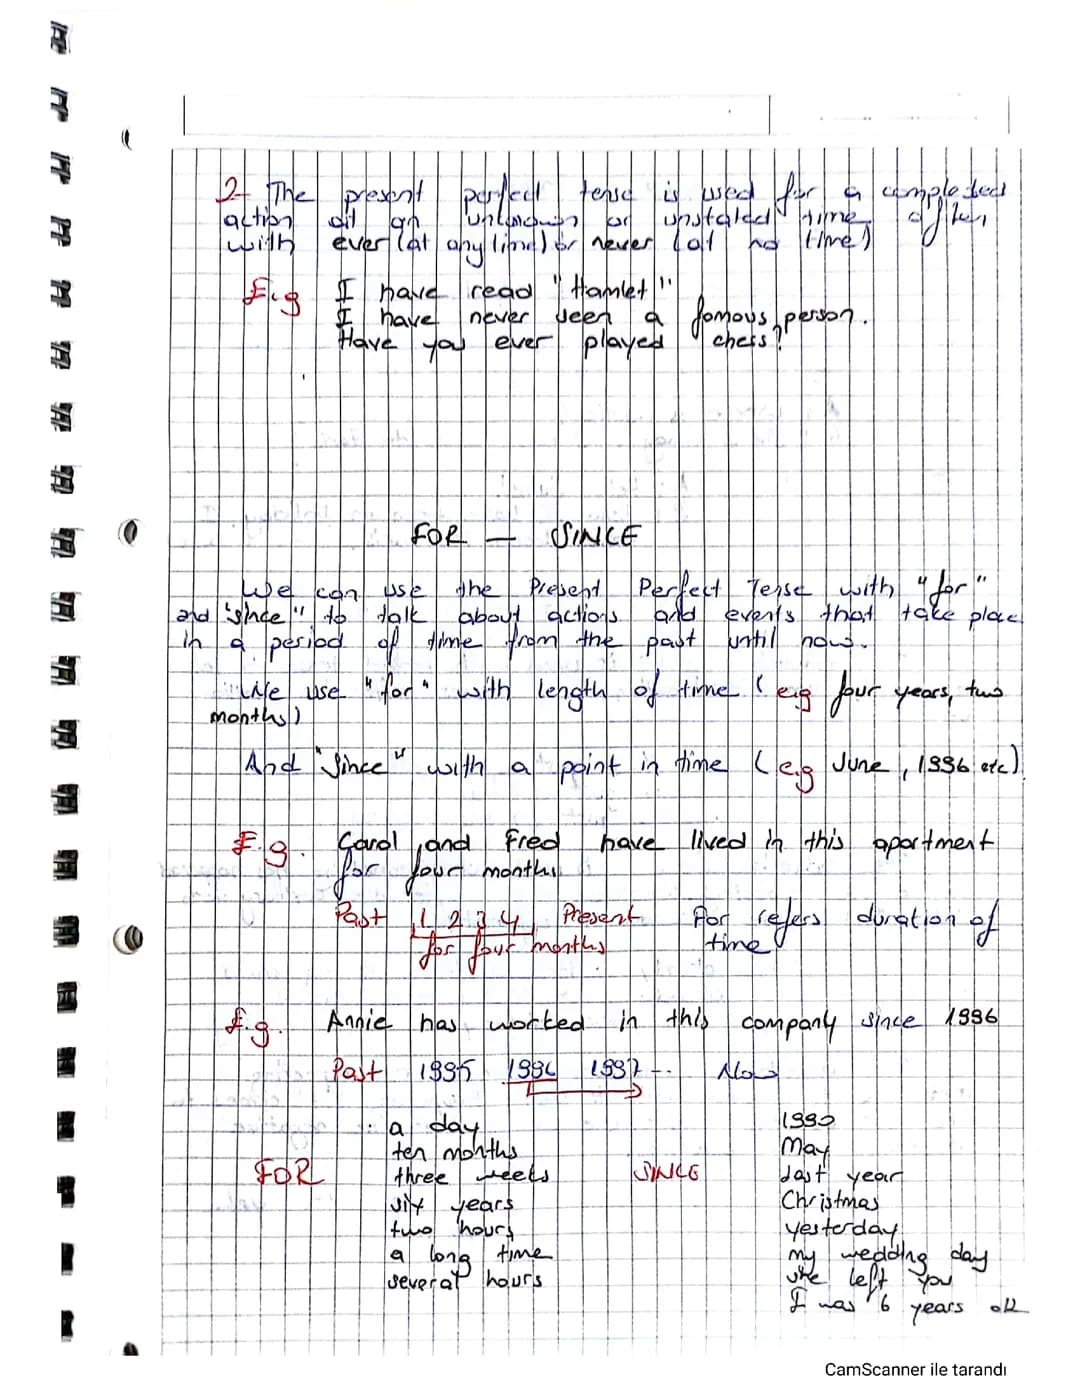 2- The present perfect tense is used for a completed
action at an unknown or unstated time often
with ever (at any time) or never (at no time)
E.g I have read "Hamlet"
I have never seen a famous person.
Have you ever played chess?
FOR — SINCE
We can use the Present Perfect Tense with "for"
and "since" to talk about actions and events that take place
in a period of time from the past until now.
We use "for" with length of time (e.g four years, two
months)
And "Since" with a point in time (e.g June, 1996 etc)
E.g. Carol and Fred have lived in this apartment
for four months
Past 1 2 3 4 Present For refers duration of
for four months time
E.g. Annie has worked in this company since 1996
Past 1995 1996 1997 -- Now
FOR
a day
ten months
three weeks
six years
two hours
a long time
several hours
SINCE
1990
May
last year
Christmas
yesterday
my wedding day
she left you
I was 6 years old
CamScanner ile tarandı